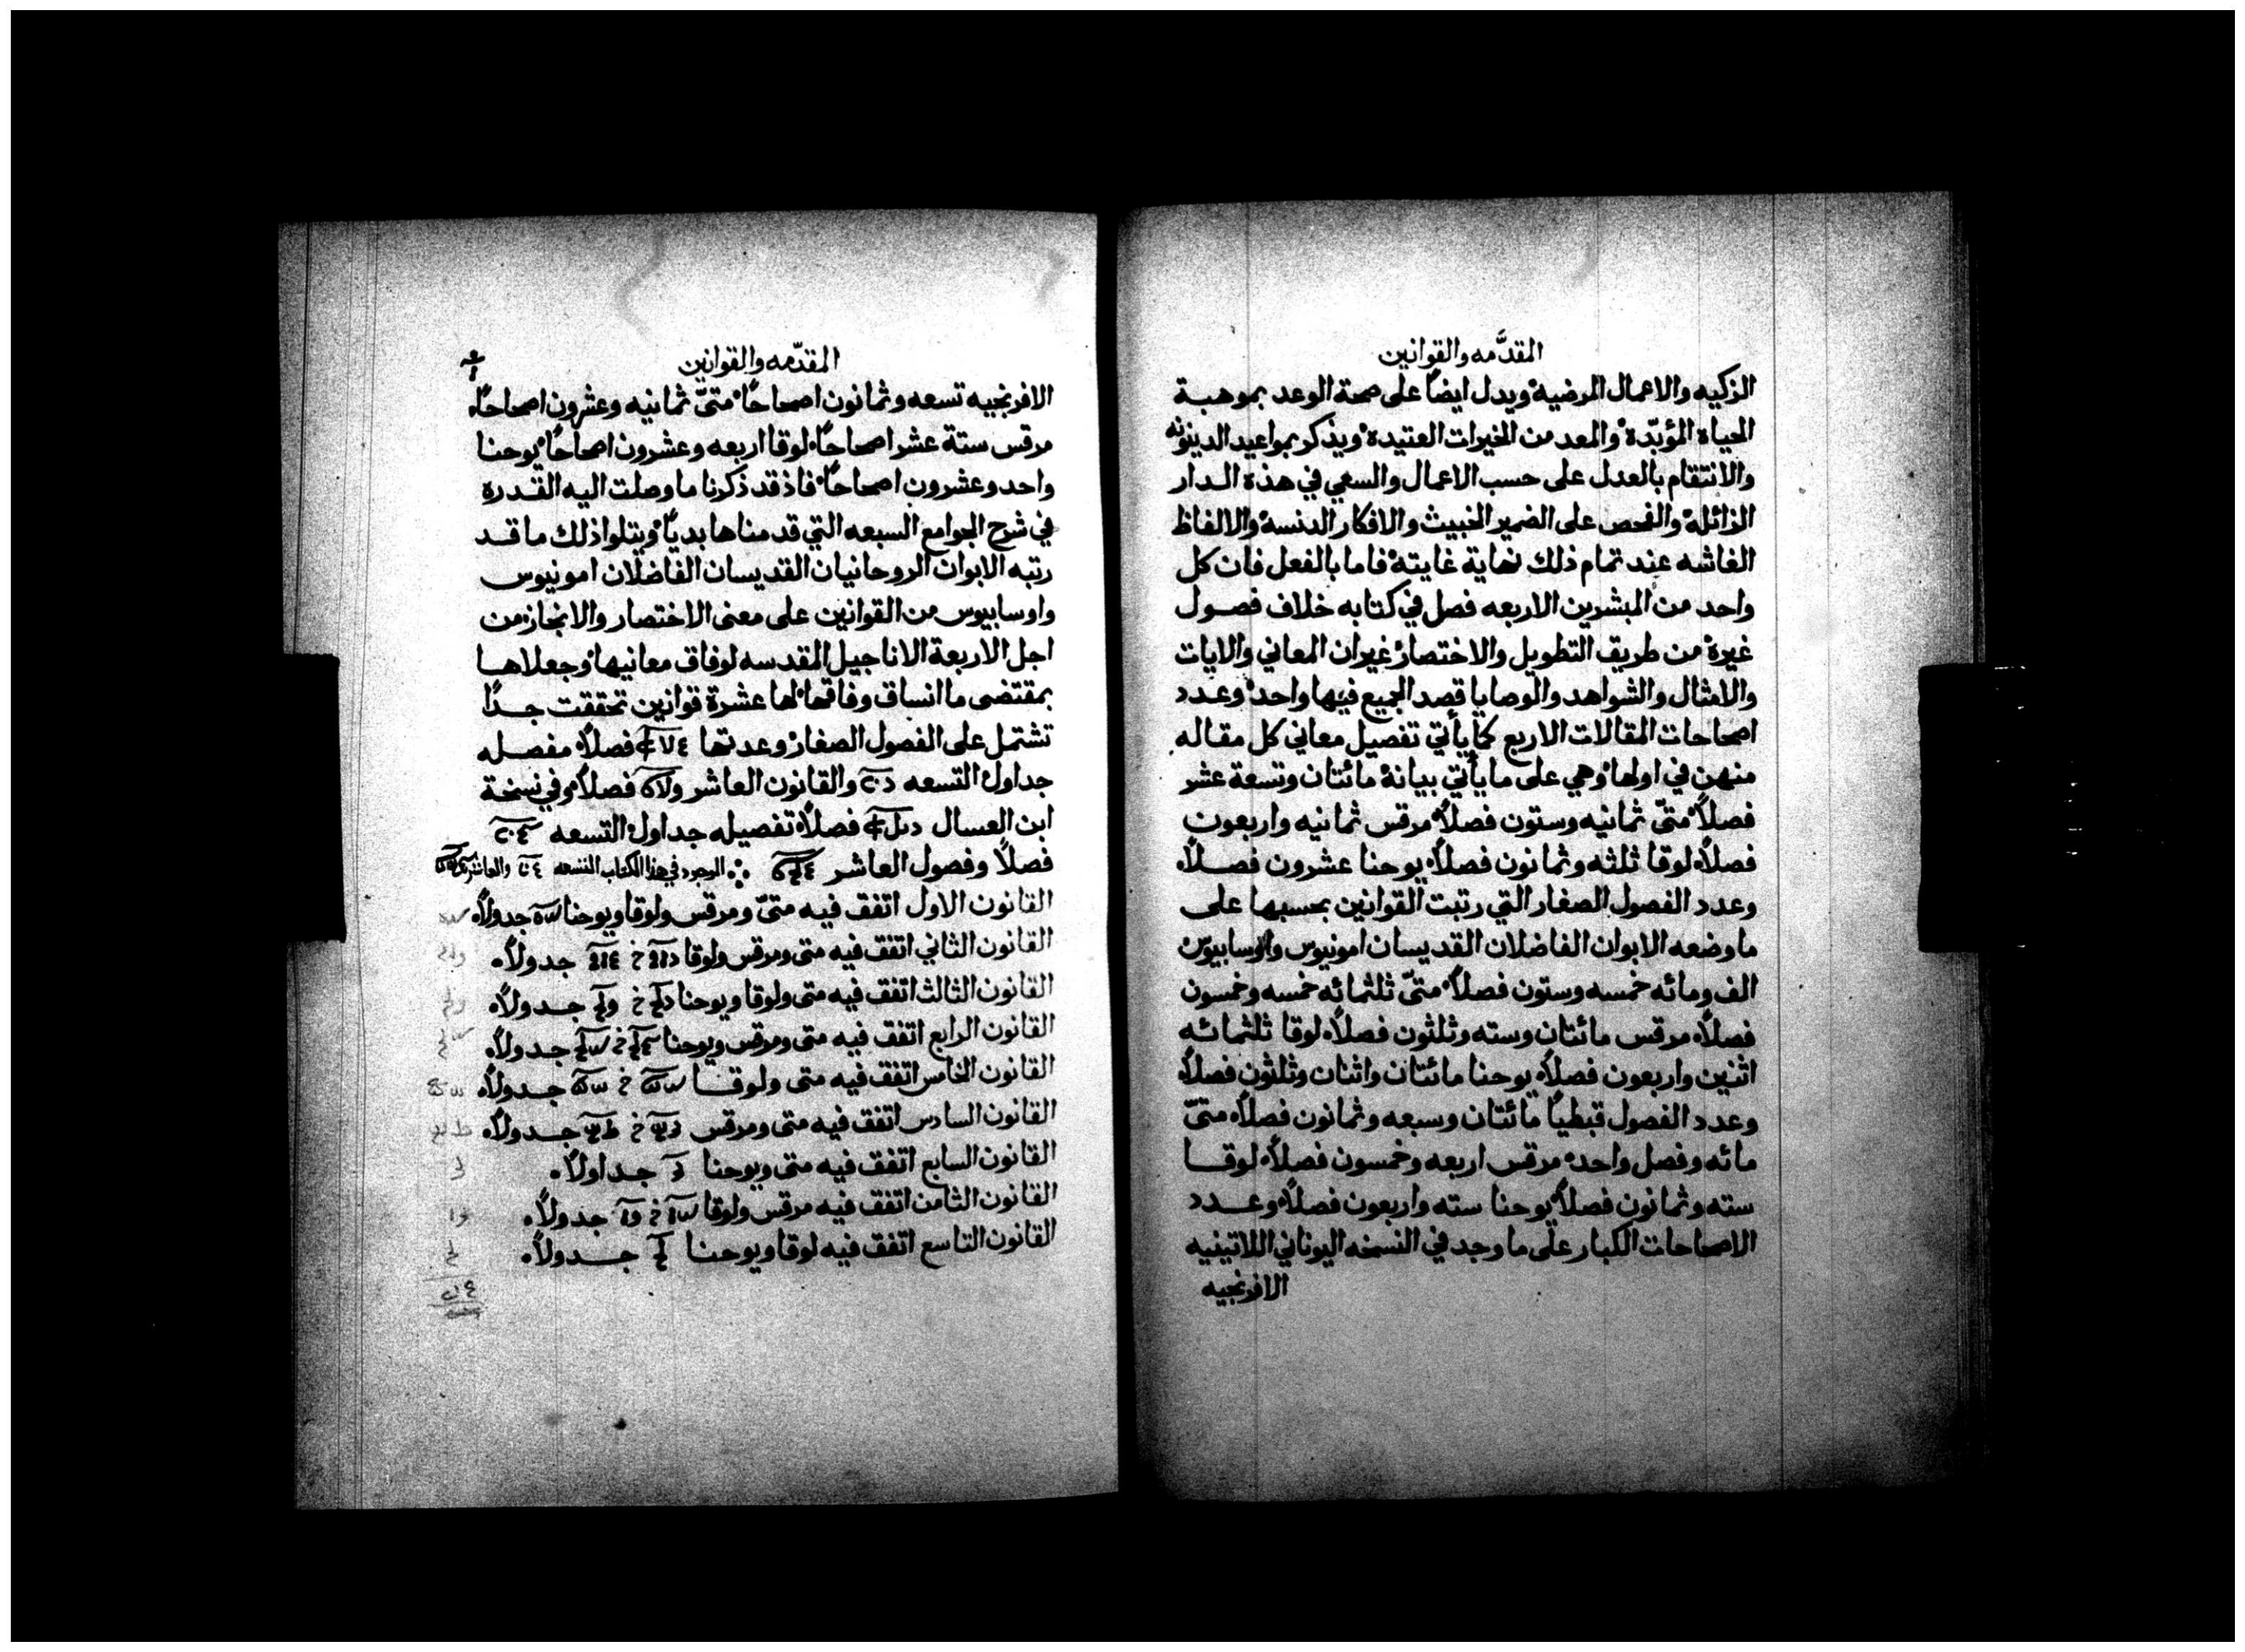 المقدَّمه والقوانين
الزكيه والاعمال المرضية ويدل ايضاً على صحة الوعد بموهبة
الحياة المؤبّدة والمعد من الخيرات العتيدة ويذكر بمواعيد الدينونه
والانتقام بالعدل على حسب الاعمال والسعي في هذة الدار
الزائلة والفحص على الضمير الخبيث والافكار الدنسة والالفاظ
الغاشه عند تمام ذلك نهاية غايتة فاما بالفعل فان كل
واحد من المبشرين الاربعه فصل في كتابه خلاف فصول
غيرة من طريق التطويل والاختصار غيران المعاني والايات
والامثال والشواهد والوصايا قصد الجميع فيها واحد وعدد
اصحاحات المقالات الاربع كما يأتي تفصيل معاني كل مقاله
منهن في اولها وهي على ما يأتي بيانة مائتان وتسعة عشر
فصلاً متىّ ثمانيه وستون فصلاً مرقس ثمانيه واربعون
فصلاً لوقا ثلثه وثمانون فصلاً يوحنا عشرون فصلاً
وعدد الفصول الصغار التي رتبت القوانين بحسبها على
ما وضعه الابوان الفاضلان القديسان امونيوس واوسابيوس
الف ومائه خمسه وستون فصلاً متىّ ثلثمائه خمسه وخمسون
فصلاً مرقس مائتان وسته وثلثون فصلاً لوقا ثلثمائه
اثنين واربعون فصلاً يوحنا مائتان واثنان وثلثون فصلاً
وعدد الفصول قبطياً مائتان وسبعه وثمانون فصلاً متىّ
مائه وفصل واحد مرقس اربعه وخمسون فصلاً لوقا
سته وثمانون فصلاً يوحنا سته واربعون فصلاً وعدد
الاصحاحات الكبار على ما وجد في النسخه اليوناني اللاتينيه
الافرنجيه
المقدّمه والقوانين
الافرنجيه تسعه وثمانون اصحاحاً متىّ ثمانيه وعشرون اصحاحاً
مرقس ستة عشر اصحاحاً لوقا اربعه وعشرون اصحاحاً يوحنا
واحد وعشرون اصحاحاً فاذ قد ذكرنا ما وصلت اليه القدرة
في شرح الجوامع السبعه التي قدمناها بدياً ويتلوا ذلك ما قد
رتبه الابوان الروحانيان القديسان الفاضلان امونيوس
واوسابيوس من القوانين على معنى الاختصار والانجاز من
اجل الاربعة الاناجيل المقدسه لوفاق معانيها وجعلاها
بمقتضى ما انساق وفاقها لها عشرة قوانين تحققت جداً
تشتمل على الفصول الصغار وعدتها فصلاً مفصله
جداول التسعه والقانون العاشر فصلاً وفي نسخة
ابن العسال فصلاً تفصيله جداول التسعه
فصلاً وفصول العاشر الموجود في هذا الكتاب التسعه والعاشر
القانون الاول اتفق فيه متىّ ومرقس ولوقا ويوحنا جدولاً
القانون الثاني اتفق فيه متى ومرقس ولوقا جدولاً
القانون الثالث اتفق فيه متى ولوقا ويوحنا جدولاً
القانون الرابع اتفق فيه متى ومرقس ويوحنا جدولاً
القانون الخامس اتفق فيه متى ولوقا جدولاً
القانون السادس اتفق فيه متى ومرقس جدولاً
القانون السابع اتفق فيه متى ويوحنا جداولاً
القانون الثامن اتفق فيه مرقس ولوقا جدولاً
القانون التاسع اتفق فيه لوقا ويوحنا جدولاً